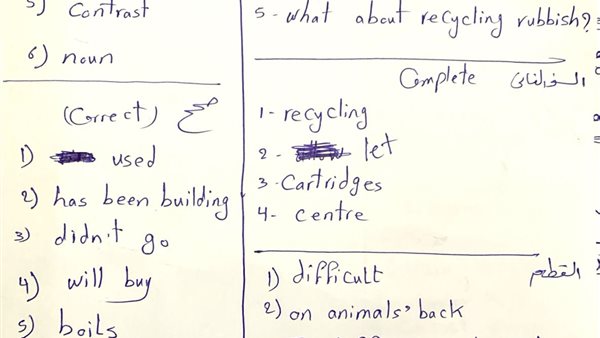 5) Contrast
6) noun
(Correct) صحح
1) used
2) has been building
3) didn't go
4) will buy
5) boils
5 - what about recycling rubbish?
Complete
1 - recycling
2 - let
3 - Cartridges
4 - centre
القطعه
1) difficult
2) on animals' back